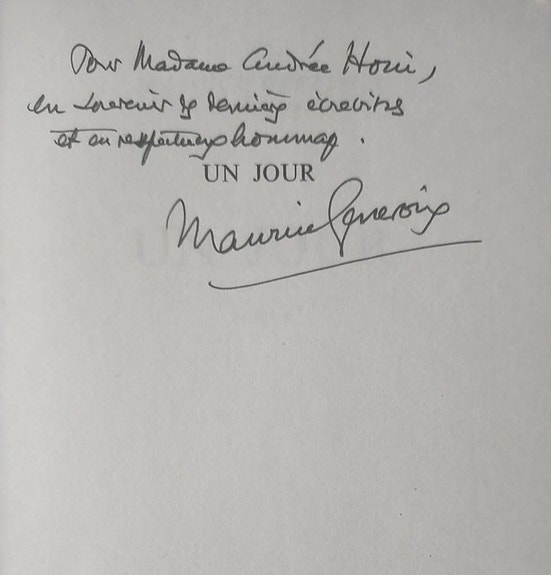 Pour Madame Andrée
en souvenir de
et en respectueux hommage.
UN JOUR
Maurice Genevoix